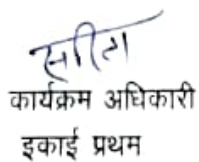 सरिता
कार्यक्रम अधिकारी
इकाई प्रथम